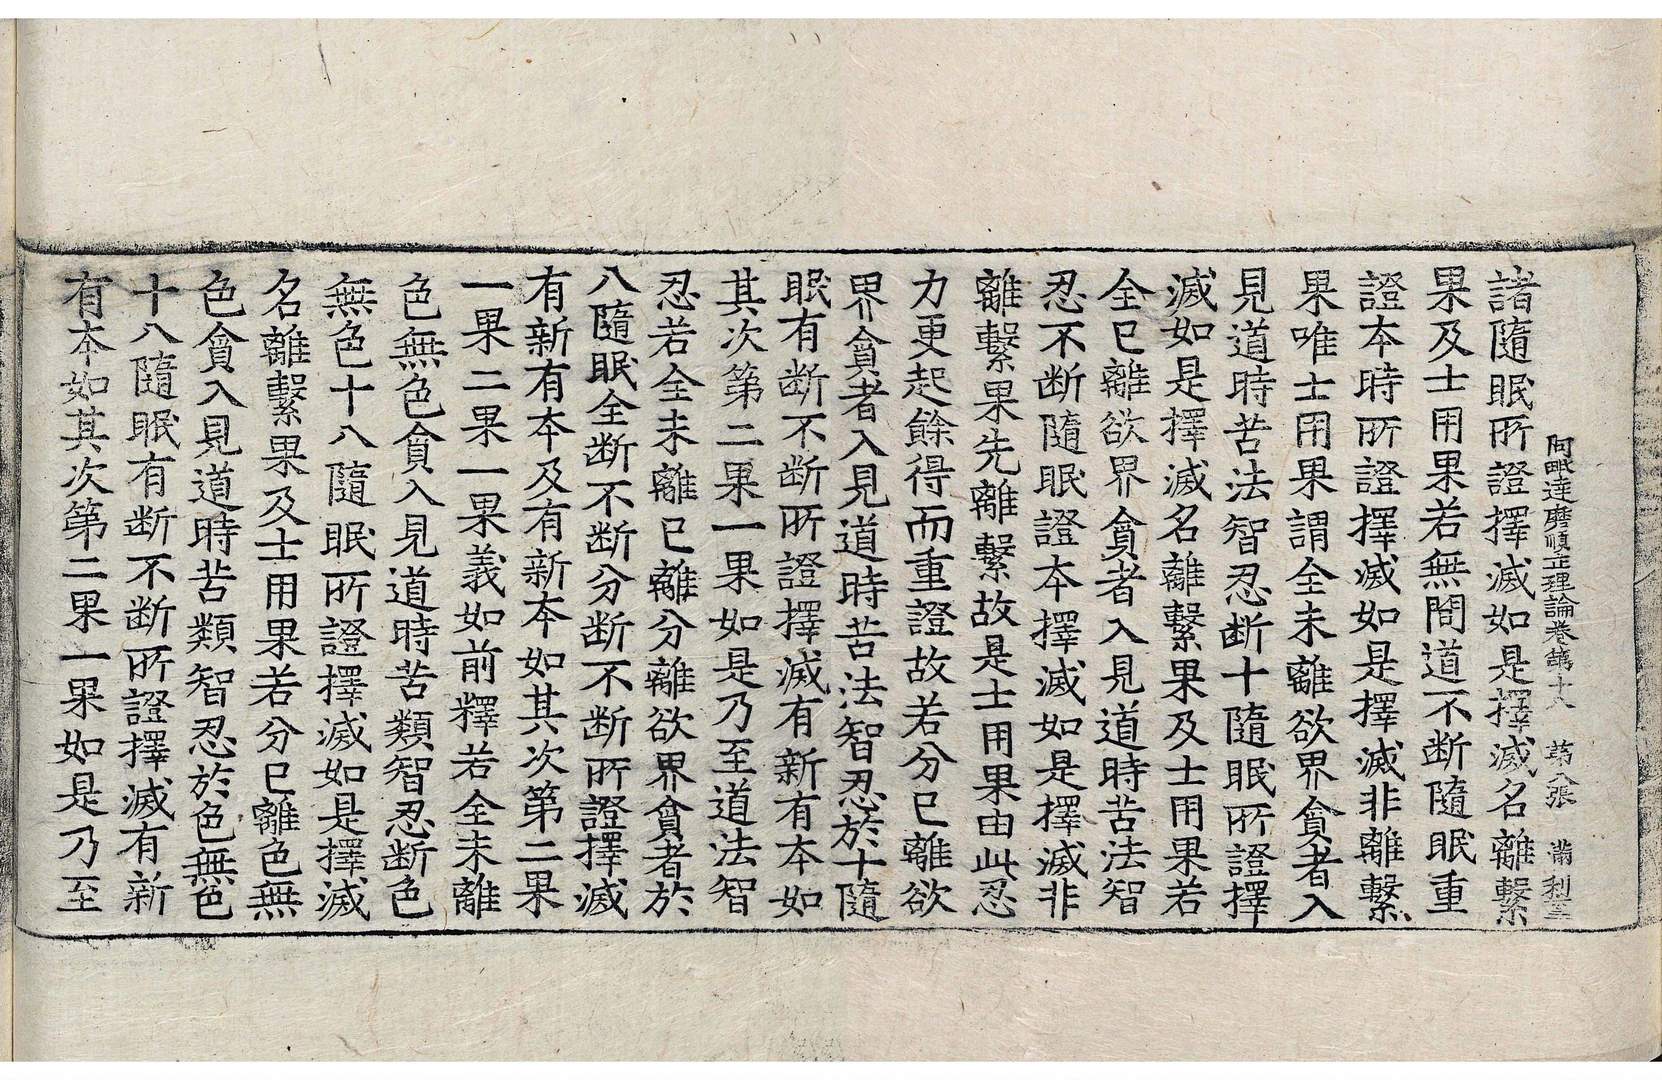 阿毗達磨順正理論卷第十八　第八張　滿　利至
諸隨眠所證擇滅如是擇滅名離繫
果及士用果若無間道不断隨眠重
證本時所證擇滅如是擇滅非離繫
果唯士用果謂全未離欲界貪者入
見道時苦法智忍断十隨眠所證擇
滅如是擇滅名離繫果及士用果若
全已離欲界貪者入見道時苦法智
忍不断隨眠證本擇滅如是擇滅非
離繫果先離繫故是士用果由此忍
力更起餘得而重證故若分已離欲
界貪者入見道時苦法智忍於十隨
眠有断不断所證擇滅有新有本如
其次第二果一果如是乃至道法智
忍若全未離已離分離欲界貪者於
八隨眠全断不断分断不断所證擇滅
有新有本及有新本如其次第二果
一果二果一果義如前釋若全未離
色無色貪入見道時苦類智忍断色
無色十八隨眠所證擇滅如是擇滅
名離繫果及士用果若分已離色無
色貪入見道時苦類智忍於色無色
十八隨眠有断不断所證擇滅有新
有本如其次第二果一果如是乃至